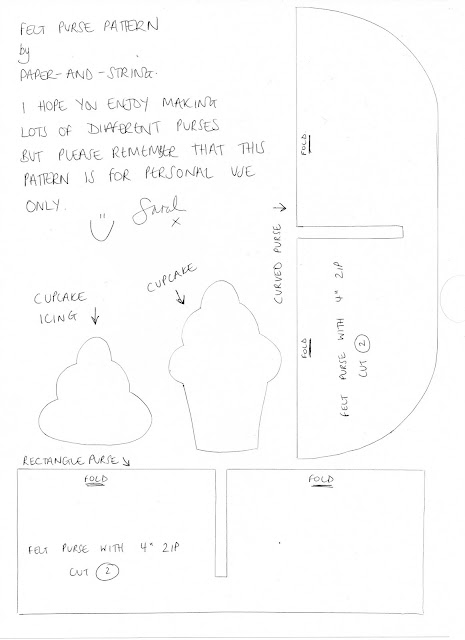 FELT PURSE PATTERN
by
PAPER-AND-STRING.
I HOPE YOU ENJOY MAKING
LOTS OF DIFFERENT PURSES
BUT PLEASE REMEMBER THAT THIS
PATTERN IS FOR PERSONAL USE
ONLY.
Sarah
x
FOLD
CURVED PURSE
FOLD
FELT PURSE WITH 4" ZIP
CUT 2
CUPCAKE
ICING
CUPCAKE
RECTANGLE PURSE
FOLD
FOLD
FELT PURSE WITH 4" ZIP
CUT 2